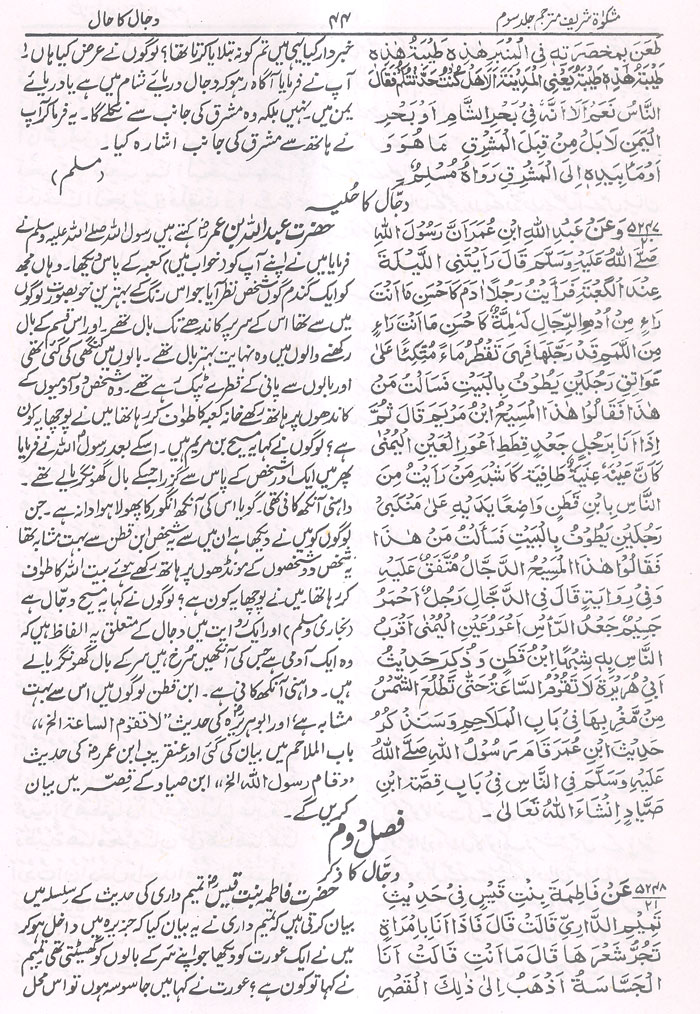 مشکوٰۃ شریف مترجم جلد سوم ۴۴ دجال کا حال
طَعَنَ بِمِخْصَرَتِهٖ فِی الْمِنْبَرِ هٰذِهٖ طَیْبَةُ هٰذِهٖ
طَیْبَةُ هٰذِهٖ طَیْبَةُ یَعْنِی الْمَدِیْنَةَ اَلَا هَلْ كُنْتُ حَدَّثْتُكُمْ فَقَالَ
النَّاسُ نَعَمْ اَلَا اِنَّهٗ فِیْ بَحْرِ الشَّامِ اَوْ بَحْرِ
الْیَمَنِ لَا بَلْ مِنْ قِبَلِ الْمَشْرِقِ مَا هُوَ وَ
اَوْمَأَ بِیَدِهٖ اِلَی الْمَشْرِقِ رَوَاهُ مُسْلِمٌ
خبردار کیا یہی میں تم کو نہ بتلایا کرتا تھا؟ لوگوں نے عرض کیا ہاں !
آپ نے فرمایا آگاہ رہو کہ دجال دریائے شام میں ہے یا دریائے
یمن میں۔ نہیں بلکہ وہ مشرق کی جانب سے نکلے گا۔ یہ فرما کر آپ
نے ہاتھ سے مشرق کی جانب اشارہ کیا۔
(مسلم)
دجّال کا حُلیہ
۵۲۴۷/۲۰ وَعَنْ عَبْدِ اللهِ ابْنِ عُمَرَ اَنَّ رَسُوْلَ اللهِ
صَلَّی اللهُ عَلَیْهِ وَسَلَّمَ قَالَ رَاَیْتُنِی اللَّیْلَةَ
عِنْدَ الْكَعْبَةِ فَرَاَیْتُ رَجُلًا اٰدَمَ كَاَحْسَنِ مَا اَنْتَ
رَاءٍ مِنْ اُدْمِ الرِّجَالِ لَهٗ لِمَّةٌ كَاَحْسَنِ مَا اَنْتَ رَاءٍ
مِنَ اللِّمَمِ قَدْ رَجَّلَهَا فَهِیَ تَقْطُرُ مَاءً مُتَّكِئًا عَلٰی
عَوَاتِقِ رَجُلَیْنِ یَطُوْفُ بِالْبَیْتِ فَسَاَلْتُ مَنْ
هٰذَا فَقَالُوْا هٰذَا الْمَسِیْحُ ابْنُ مَرْیَمَ قَالَ ثُمَّ
اِذَا اَنَا بِرَجُلٍ جَعْدٍ قَطَطٍ اَعْوَرِ الْعَیْنِ الْیُمْنٰی
كَاَنَّ عَیْنَهٗ عِنَبَةٌ طَافِیَةٌ كَاَشْبَهِ مَنْ رَاَیْتُ مِنَ
النَّاسِ بِابْنِ قَطَنٍ وَاضِعًا یَدَیْهِ عَلٰی مَنْكِبَیْ
رَجُلَیْنِ یَطُوْفُ بِالْبَیْتِ فَسَاَلْتُ مَنْ هٰذَا
فَقَالُوْا هٰذَا الْمَسِیْحُ الدَّجَّالُ مُتَّفَقٌ عَلَیْهِ
وَفِیْ رِوَایَةٍ قَالَ فِی الدَّجَّالِ رَجُلٌ اَحْمَرُ
جَسِیْمٌ جَعْدُ الرَّاْسِ اَعْوَرُ عَیْنِ الْیُمْنٰی اَقْرَبُ
النَّاسِ بِهٖ شَبَهًا ابْنُ قَطَنٍ وَ ذُكِرَ حَدِیْثُ
اَبِیْ هُرَیْرَةَ لَا تَقُوْمُ السَّاعَةُ حَتّٰی تَطْلُعَ الشَّمْسُ
مِنْ مَّغْرِبِهَا فِیْ بَابِ الْمَلَاحِمِ وَسَنَذْكُرُ
حَدِیْثَ ابْنِ عُمَرَ قَامَ رَسُوْلُ اللهِ صَلَّی اللهُ
عَلَیْهِ وَسَلَّمَ فِی النَّاسِ فِیْ بَابِ قِصَّةِ ابْنِ
صَیَّادٍ اِنْشَاءَ اللهُ تَعَالٰی۔
حضرت عبداللہ بن عمرؓ کہتے ہیں رسول اللہ صلے اللہ علیہ وسلم نے
فرمایا میں نے اپنے آپ کو (خواب میں) کعبہ کے پاس دیکھا۔ وہاں مجھ
کو ایک گندم گوں شخص نظر آیا جو اس رنگ کے بہترین خوبصورت لوگوں
میں سے تھا اس کے سر پر کاندھے تک بال تھے۔ اور اس قسم کے بال
رکھنے والوں میں وہ نہایت بہتر بال تھے۔ بالوں میں کنگھی کی گئی تھی
اور بالوں سے پانی کے قطرے ٹپک رہے تھے۔ وہ شخص دو آدمیوں کے
کاندھوں پر ہاتھ رکھے خانہ کعبہ کا طواف کر رہا تھا میں نے پوچھا یہ کون
ہے؟ لوگوں نے کہا یہ مسیح بن مریم ہیں۔ اسکے بعد رسول اللہ نے فرمایا
پھر میں ایک اور شخص کے پاس سے گزرا جسکے بال گھونگریالے تھے۔
داہنی آنکھ کانی تھی۔ گویا اس کی آنکھ انگور کا پھولا ہوا دانہ ہے۔ جن
لوگوں کو میں نے دیکھا ہے ان میں سے یہ شخص ابن قطن سے بہت مشابہ تھا
یہ شخص دو شخصوں کے مونڈھوں پر ہاتھ رکھے ہوئے بیت اللہ کا طواف
کر رہا تھا میں نے پوچھا یہ کون ہے؟ لوگوں نے کہا یہ مسیح دجال ہے
(بخاری و مسلم) اور ایک روایت میں دجال کے متعلق یہ الفاظ ہیں کہ
وہ ایک آدمی ہے جس کی آنکھیں سُرخ ہیں سر کے بال گھونگریالے
ہیں۔ داہنی آنکھ کانی ہے۔ ابن قطن لوگوں میں اس سے بہت
مشابہ ہے اور ابوہریرہؓ کی حدیث ”لا تقوم الساعة الخ“
باب الملاحم میں بیان کی گئی اور عنقریب ابن عمرؓ کی حدیث
”قام رسول اللہ الخ“ ابن صیاد کے قصّہ میں بیان
کریں گے۔
فصل دوم
دجّال کا ذکر
۵۲۴۸/۲۱ عَنْ فَاطِمَةَ بِنْتِ قَیْسٍ فِیْ حَدِیْثِ
تَمِیْمٍ الدَّارِیِّ قَالَتْ قَالَ فَاِذَا اَنَا بِامْرَاَةٍ
تَجُرُّ شَعْرَهَا قَالَ مَا اَنْتِ قَالَتْ اَنَا
الْجَسَّاسَةُ اذْهَبْ اِلٰی ذٰلِكَ الْقَصْرِ
حضرت فاطمہ بنت قیسؓ تمیم داری کی حدیث کے سلسلہ میں
بیان کرتی ہیں کہ تمیم داری نے یہ بیان کیا کہ جزیرہ میں داخل ہو کر
میں نے ایک عورت کو دیکھا جو اپنے سر کے بالوں کو گھسیٹتی تھی تمیم
نے کہا تو کون ہے؟ عورت نے کہا میں جاسوسہ ہوں تو اس محل